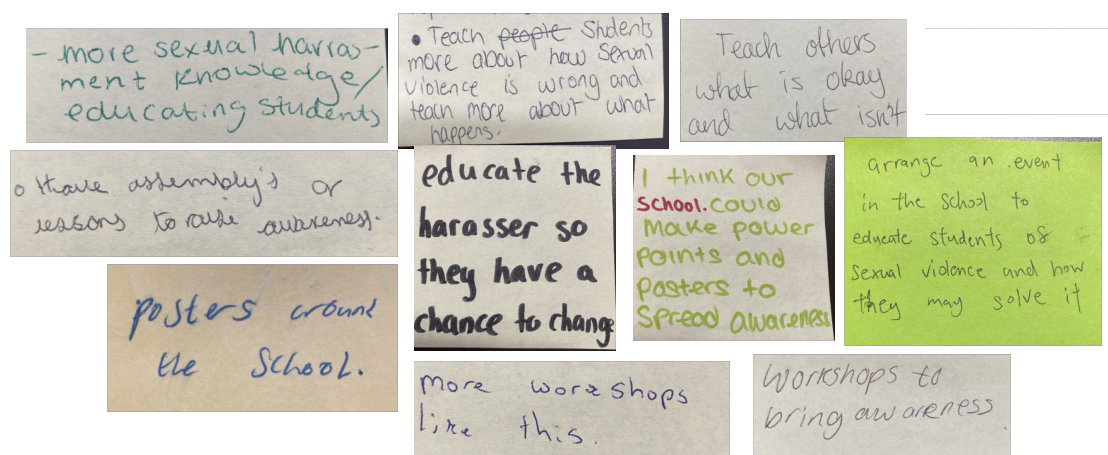 - more sexual harras-
ment knowledge/
educating students
• Teach people Students
more about how Sexual
violence is wrong and
teach more about what
happens.
Teach others
what is okay
and what isn't
o Have assembly's or
lessons to raise awareness.
educate the
harasser so
they have a
chance to change
I think our
School. could
Make power
points and
posters to
Spread awareness
arrange an event
in the school to
educate students of
sexual violence and how
they may solve it
posters around
the School.
more workshops
like this.
Workshops to
bring awareness